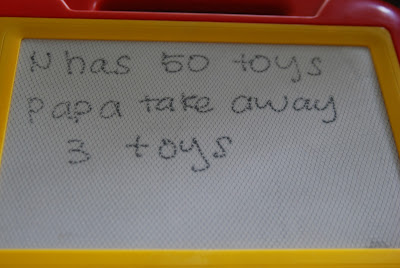 N has 50 toys
Papa take away
3 toys